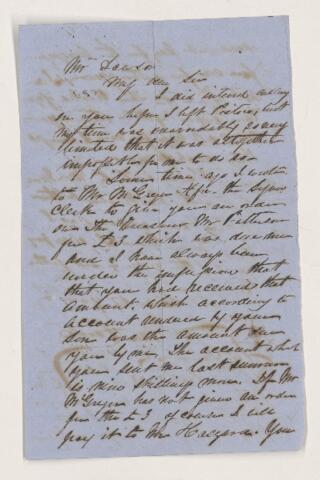 Mr Dawson
My dear Sir
I did intend calling
on you before I left Pictou, but
my time was unavoidably so very
limited that it was altogether
impossible for me to do so.
Some time ago I wrote
to Mr McGregor the
clerk to give you an order
on the Treasurer Mr Patterson
for £3 which was due me
and I have always been
under the impression that
that you had received that
amount, which according to
account rendered by your
son was the amount due
you by me. The account which
you sent me last summer
is nine shillings more. If Mr
McGregor has not given an order
for the £3 of course I will
pay it to Mr You